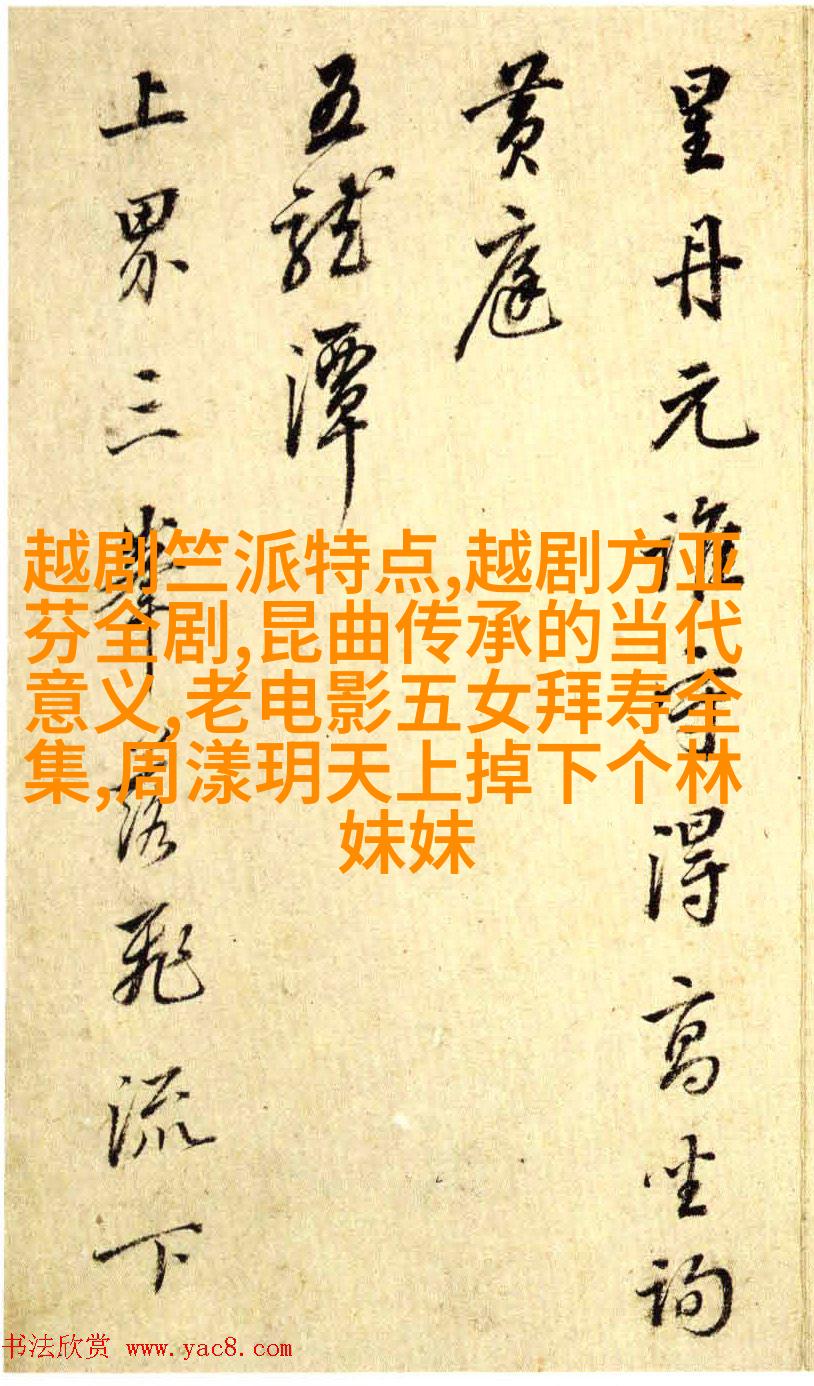 星丹元誰守得高坐詢
黄庭
五龍潭
上界三峯落飛流下
越剧竺派特点,越剧方亚
芬全剧,昆曲传承的当代
意义,老电影五女拜寿全
集,周漾玥天上掉下个林
妹妹
书法欣赏 www.yac8.com